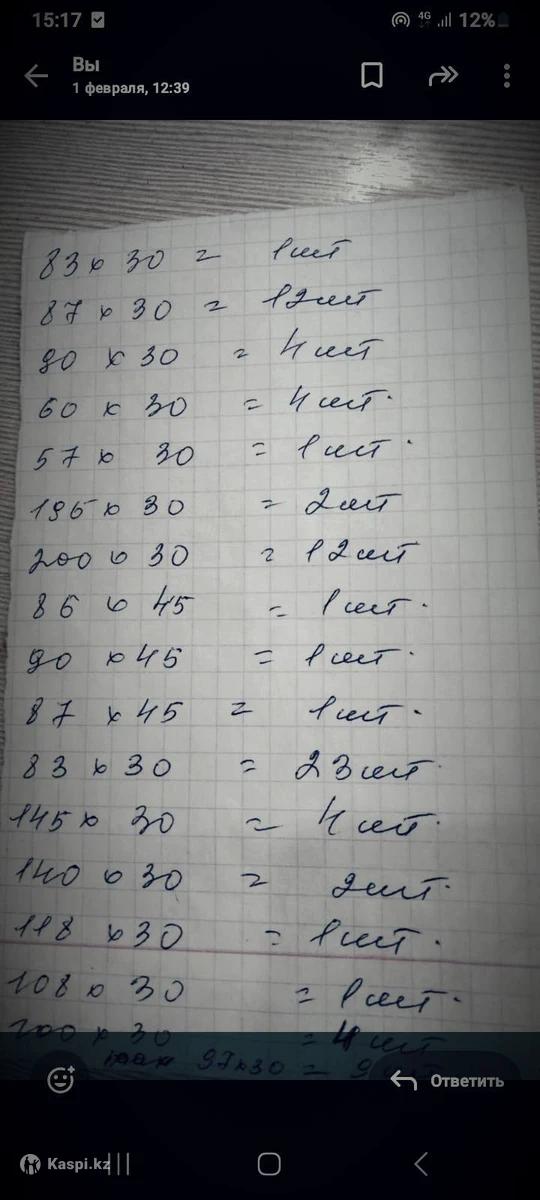 15:17 4G 12%
Вы
1 февраля, 12:39
83 х 30 = 1 шт
87 х 30 = 12 шт
90 х 30 = 4 шт
60 х 30 = 4 шт.
57 х 30 = 1 шт.
195 х 30 = 2 шт
200 х 30 = 12 шт
86 х 45 = 1 шт.
90 х 45 = 1 шт.
87 х 45 = 1 шт.
83 х 30 = 23 шт.
145 х 30 = 4 шт.
140 х 30 = 2 шт.
118 х 30 = 1 шт.
108 х 30 = 1 шт.
200 х 30 = 4 шт
97х30 = 9
Ответить
Kaspi.kz